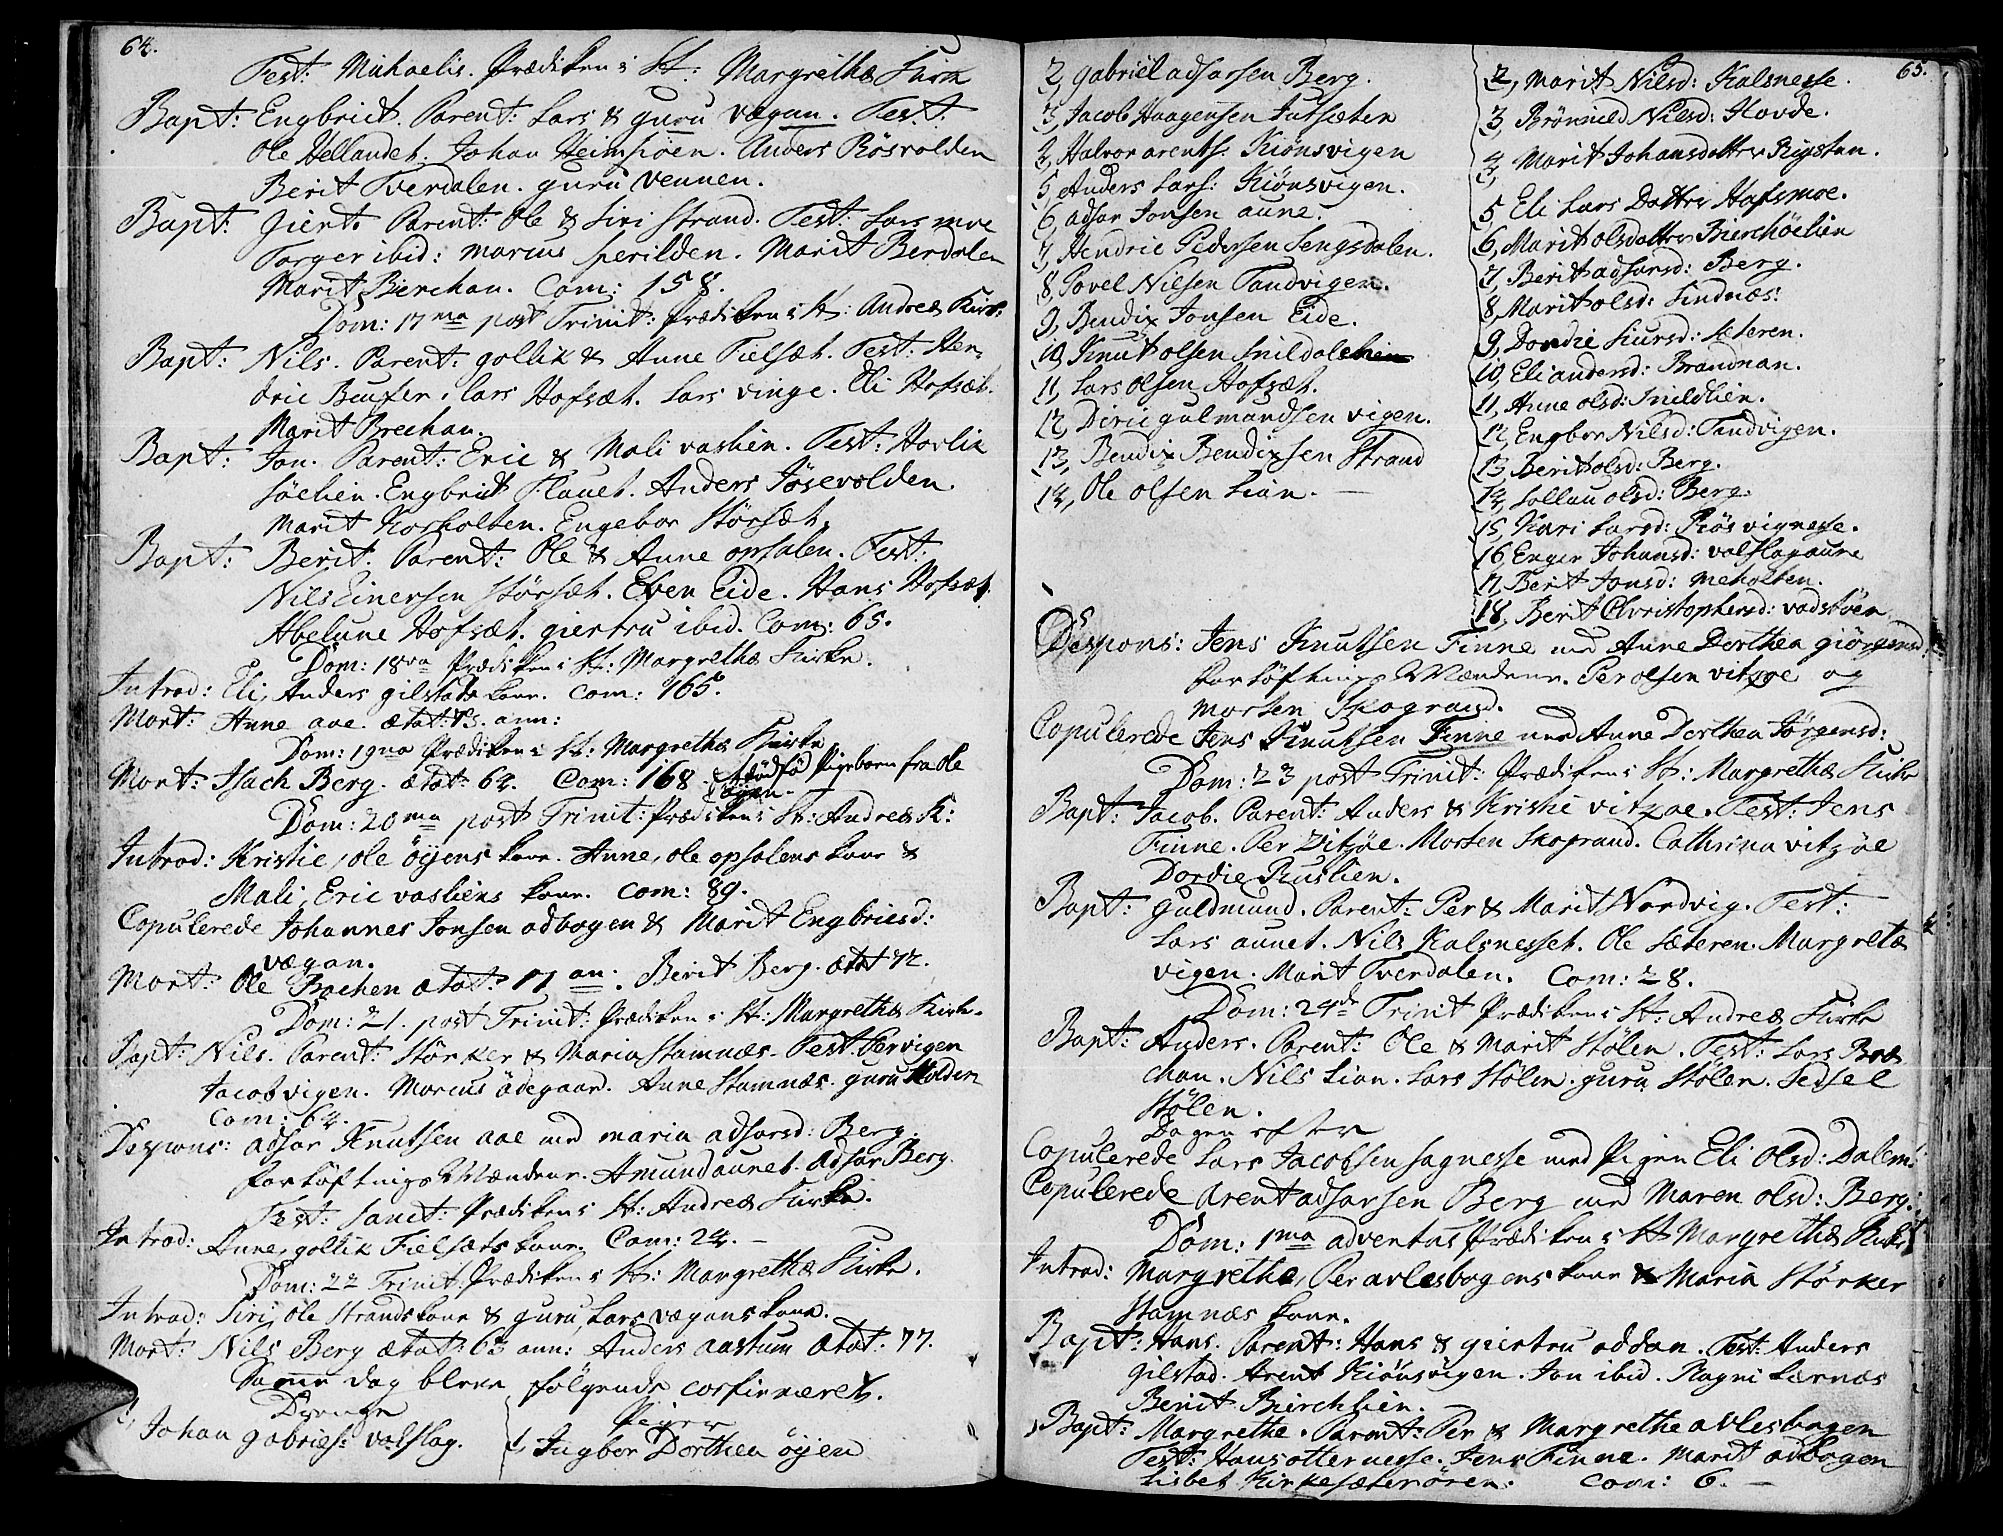 64.
Fest: Michaelis. Prædiken i St: Margrethæ Kirke
Bapt: Engbrict. Parent: Lars & guru vægan. Test:
Ole Hellandet. Johan Heimsiøen. Anders Røsvolden
Berit Tverdalen. guru Vennen.
Bapt: Giert. Parent: Ole & Siri Strand. Test: Lars moe
Torger ibid: marcus perilden. Marit Berdalen
Marit Berchan. Com: 158.
Dom: 17ma post Trinit: Prædiken i St: Andreæ Kirk:
Bapt: Nils. Parent: gollik & Anne Fielsæt. Test: Hen-
dric Beuxer, lars Hofsæt. Lars vinge. Eli Hofsæt.
Marit Brechan.
Bapt: Jon. Parent: Eric & Mali vaslien. Test: Horlik
søelien. Engbrict Flauet. Anders Jøsevolden
Marit Korholten. Engebor Størsæt.
Bapt: Berit. Parent: Ole & Anne opsalen. Test:
Nils Einersen Størsæt. Even Eide. Hans Hofsæt.
Abelune Hofsæt. giertru ibid. Com: 65.
Dom: 18va Prædiken i St: Margrethæ Kirke.
Introd: Eli, Anders gilstads kone. Com: 165.
Mort: Anne aae. ætat: 73. ann:
Dom: 19na Prædiken i St: Margrethæ Kirke
Mort: Isach Berg. ætat: 64. Com: 168. dødfød Pigebarn fra ole
øyen.
Dom: 20ma post Trinit: Prædiken i St: Andreæ K:
Introd: Kristie, ole øyens kone. Anne, ole opsalens kone &
Mali, Eric vasliens kone. Com: 89.
Copulerede Johannes Jonsen adbogen & Marit Engbricsd:
vægan.
Mort: Ole Bachen ætat: 11 an: Berit Berg. ætat 72.
Dom: 21. post Trinit: Prædiken i St: Margrethæ Kirke.
Bapt: Nils. Parent: Størker & Maria Stamnæs. Test: Per vigen
Jacob vigen. Marcus ødegaard. Anne Stamnæs. guru Holden
Com: 64.
Despons: adsor Knutsen aae med maria adsorsd: Berg.
forløftnings Mændene. Amund aunet. Adsor Berg.
Fest: Sanct: Prædiken i St: Andreæ Kirke.
Introd: Anne, gollik Fielsæts kone. Com: 24.
Dom: 22 Trinit. Prædiken i St: Margrethæ Kirke.
Introd: Siri, ole Strands kone & guru, Lars vægans kone.
Mort: Nils Berg ætat: 63 ann: Anders aastum ætat: 77.
Samme dag bleve følgende confirmeret.
Drenge
Piger
1, Johan gabriels: valslag.
1, Ingbor Dorthea øyen
2, gabriel adsorsen Berg.
3, Jacob Haagensen Jutsæter
4, Halvor arents: Kiønsvigen
5, Anders Lars: Kiønsvigen.
6, adsor Jonsen aune.
7, Hendric Pedersen Lengsdalen.
8, Povel Nilsen Tandvigen.
9, Bendix Jonsen Eide.
10, Knut olsen Snildal
11, Lars olsen Hofsæt.
12, Diric gulmandsen vigen.
13, Bendix Bendixsen Strand
14, Ole olsen Lian.
65.
2, Marit Nilsd: Kalsnesse.
3, Brønnild Nilsd: Hovde.
4, Marit Johansdatter Rigstan.
5, Eli Lars Datter Hofsmoe.
6, Marit olsdatter Bierchøelien
7, Berit adsorsd: Berg.
8, Marit olsd: Lindnæs:
9, Dordie Lursd: sæteren.
10, Eli andersd: Brandnan.
11, Anne olsd: Snildlien.
12, Engbor Nilsd: Tandvigen.
13, Berit olsd: Berg.
14, Sollau olsd: Berg.
15, Kari Larsd: Røsvignesse.
16, Enger Johansd: valslagaune
17, Berit Jonsd: meholten.
18, Berit Christophersd: vadstøen
Despons: Jens Knutsen Finne med Anne Dorthea giørgensd
forløftnings Mændene. Per olsen vitzøe og
Morten Skogrand.
Copulerede Jens Knutsen Finne med Anne Dorthea Jørgensd:
Dom: 23 post Trinit: Prædiken i St: Margrethæ Kirke
Bapt: Jacob. Parent: Anders & Kristie vitzøe. Test: Jens
Finne. Per Vitzøe. Morten Skogrand. Cathrina vitzøe
Dordie Ruslien.
Bapt: Guldmund. Parent: Per & Marit Nordvig. Test:
Lars aunet. Nils Kalsnesset. Ole sæteren. Margretæ
vigen. Marit Tverdalen. Com: 28.
Dom: 24de Trinit Prædiken i St: Andreæ Kirke
Bapt: Anders. Parent: Ole & Marit Stølen. Test: Lars Bræ
chan. Nils Lian. Lars Stølen. guru Stølen. Sedsel
Stølen.
Dagen efter
Copulerede Lars Jacobsen sagnesse med Pigen Eli Olsd: Dalem:
Copulerede Arent adsorsen Berg med Maren olsd: Berg:
Dom: 1ma adventus Prædiken i St Margrethæ Kirke
Introd: Margrethe, Per avlesbogens kone & Maria Størker
Stamnæs kone.
Bapt: Hans. Parent: Hans & giertru oddan. Test: Anders
gilstad. Arent Kiønsvigen. Jon ibid. Ragni Lærnæs
Berit Bierchlien.
Bapt: Margrethe. Parent: Per & Margrethe avlesbogen
Test: Hans otternesse. Jens Finne. Marit adbogen
Lisbet Kirkesæterøren. Com: 6.